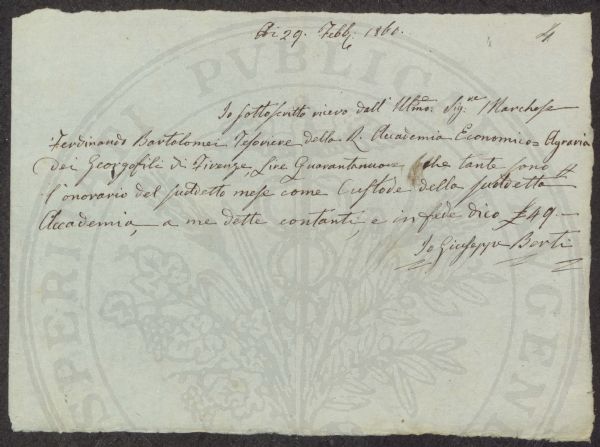 Di 29. Febb. 1860.
4
Io sottoscritto ricevo dall' Illmo. Sigre. Marchese
Ferdinando Bartolomei Tesoriere della R. Accademia Economico= Agraria
dei Georgofili di Firenze, Lire Quarantanuove che tante sono
l'onorario del suddetto mese come Custode della suddetta
Accademia, a me dette contanti, e in fede dico £ 49.—
Io Giuseppe Berti
PVBLICA
PROSPERI
GEN